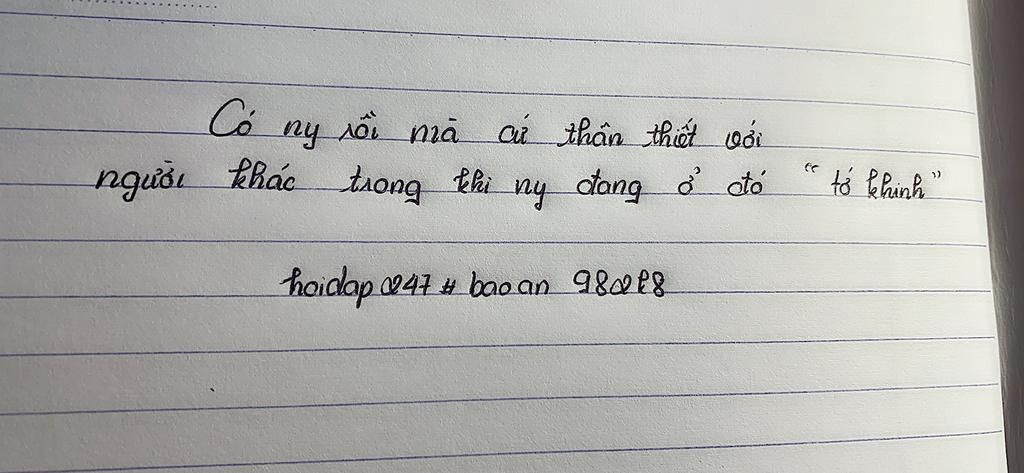 Có ny rồi mà cứ thân thiết với
người khác trong khi ny đang ở đó "tớ khinh"
hoidap247 # baoan 98